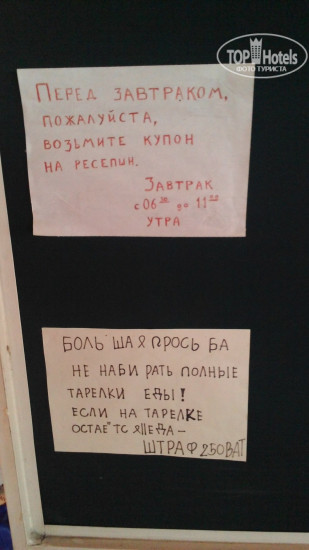 TOP Hotels
ФОТО ТУРИСТА
ПЕРЕД ЗАВТРАКОМ,
ПОЖАЛУЙСТА,
ВОЗЬМИТЕ КУПОН
НА РЕСЕПШН.
ЗАВТРАК
с 06³⁰ до 11⁰⁰
УТРА
БОЛЬ ШАЯ ПРОСЬ БА
НЕ НАБИ РАТЬ ПОЛНЫЕ
ТАРЕЛКИ ЕДЫ!
ЕСЛИ НА ТАРЕЛКЕ
ОСТАЕ"ТС Я ЕДА –
ШТРАФ 250ВАТ